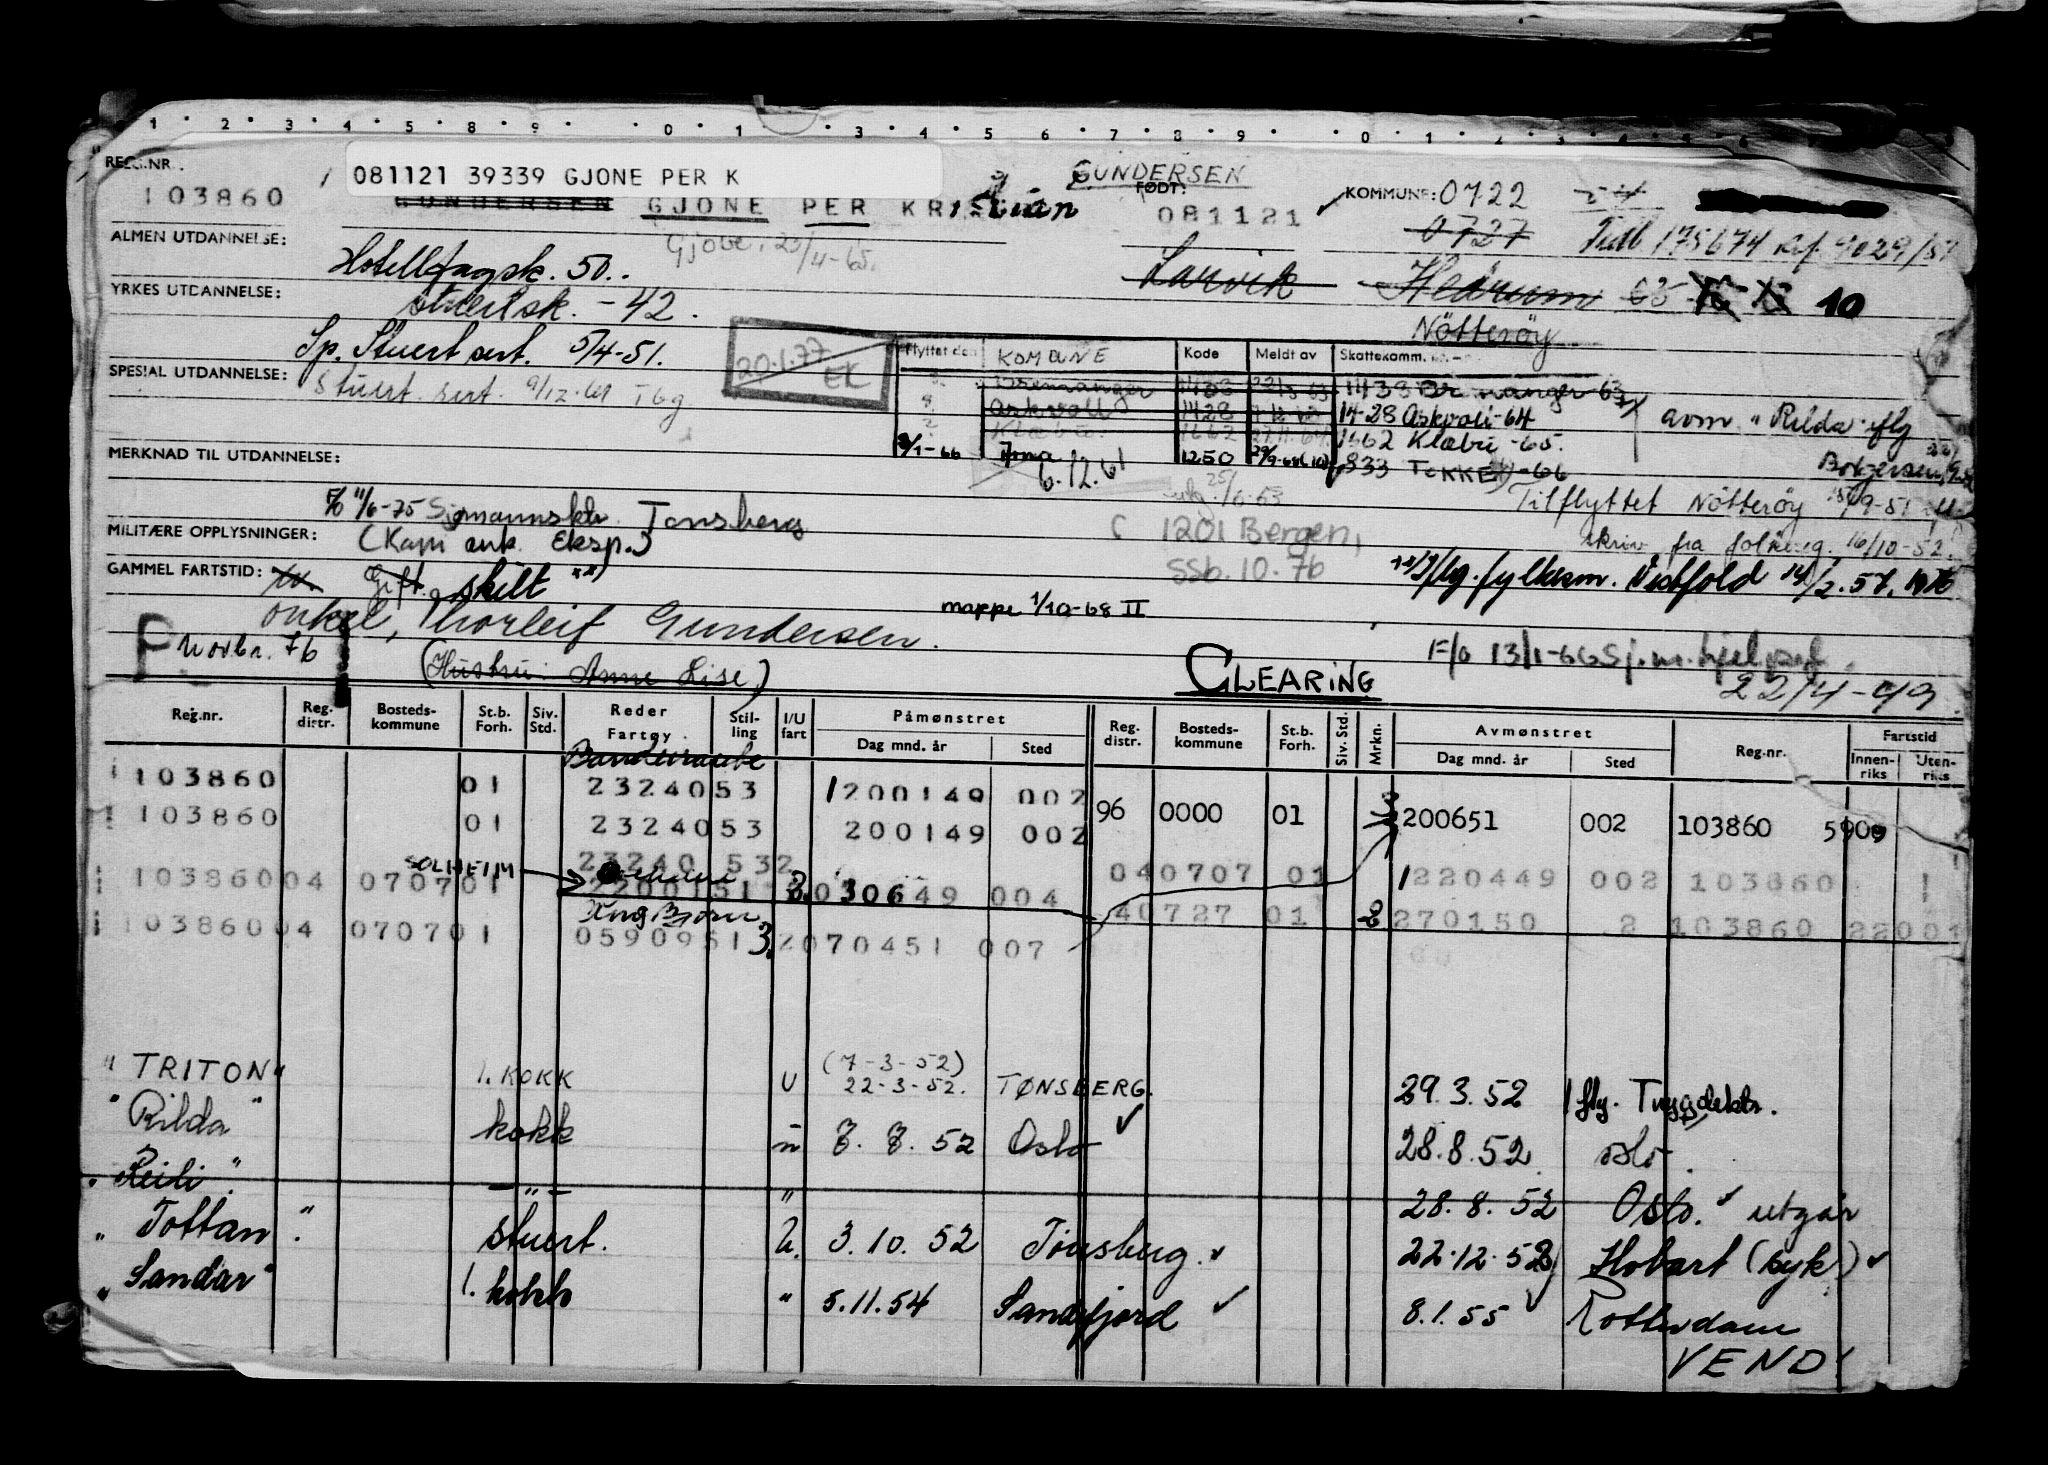 1 2 3 4 5 8 9 0 1 3 4 5 6 7 8 9 0 1 2 3
REG.NR. 103860
081121 39339 GJONE PER K
GUNDERSEN
GUNDERSEN GJONE PER KRistian
FØDT: 081121
KOMMUNE: 0722
0727
Tidl 175674 Ref. 9029/51
Gjøbe, 23/4-65.
ALMEN UTDANNELSE: Hotellfagsk. 50..
Larvik Hedrum 65 10
YRKES UTDANNELSE: stuertsk. -42.
Nötteröy
Sp. Stuert sert. 5/4-51.
20.1.77 EK
SPESIAL UTDANNELSE: Stuert. sert. 9/12-61 Tbg
Flyttet den KOMUNE Kode Meldt av Skattekomm.
Bremanger 1438 1438 Bremanger-63
Askvoll 1428 1428 Askvoll-64
Klæbu 1662 27.11.64 1662 Klæbu-65.
1-66 1250 833 TOKKE -66
avm. "Rilda" flg
MERKNAD TIL UTDANNELSE:
6.12.61
25/6.63
Tilflyttet Nötteröy /9-51
F/o 11/6-75 Sjømannsktr. Tønsberg
C 1201 Bergen,
skriv fra folkereg. 16/10-52.
MILITÆRE OPPLYSNINGER: (Kam ank. Eksp.)
SSb. 10.76
GAMMEL FARTSTID: Gift skilt
flg. fylkesm. Vestfold 14/2.57.
onkel, Thorleif Gundersen.
mappe 1/10-68 II
P Novbr. 76
(Hustru: Anne Lise)
CLEARING
F/o 13/1-66
22/4-49
Reg.nr. Reg. distr. Bosteds-kommune St.b. Forh. Siv. Std. Reder Fartøy Stil-ling I/U fart Påmønstret Dag mnd. år Sted Reg. distr. Bosteds-kommune St.b. Forh. Siv. Std. Mrkn. Avmønstret Dag mnd. år Sted Reg.nr. Fartstid Innen-riks Uten-riks
103860 01 2324053 1200149 002
96 0000 01 200651 002 103860 5909
103860 01 2324053 200149 002
23240 532
SOLHEIM
10386004 070701 2200151 3 030649 004 040707 01 1220449 002 103860
Kong Bjørn
10386004 070701 0590951 3 2070451 007 40727 01 2 270150 2 103860 22001
"TRITON" 1. KOKK U (7-3-52) 22-3-52. TØNSBERG. 29.3.52 flg. Trygdektr.
"Rilda" kokk u 7. 7. 52 Oslo 28.8.52 Oslo.
"Reili". - " - " 28.8.52 Oslo. utgår
"Tottan". stuert. U. 3.10.52 Tönsberg. 22.12.52 Hobart (syk)
"Sandar" 1. kokk " 5.11.54 Sandefjord 8.1.55 Rotterdam
VEND!